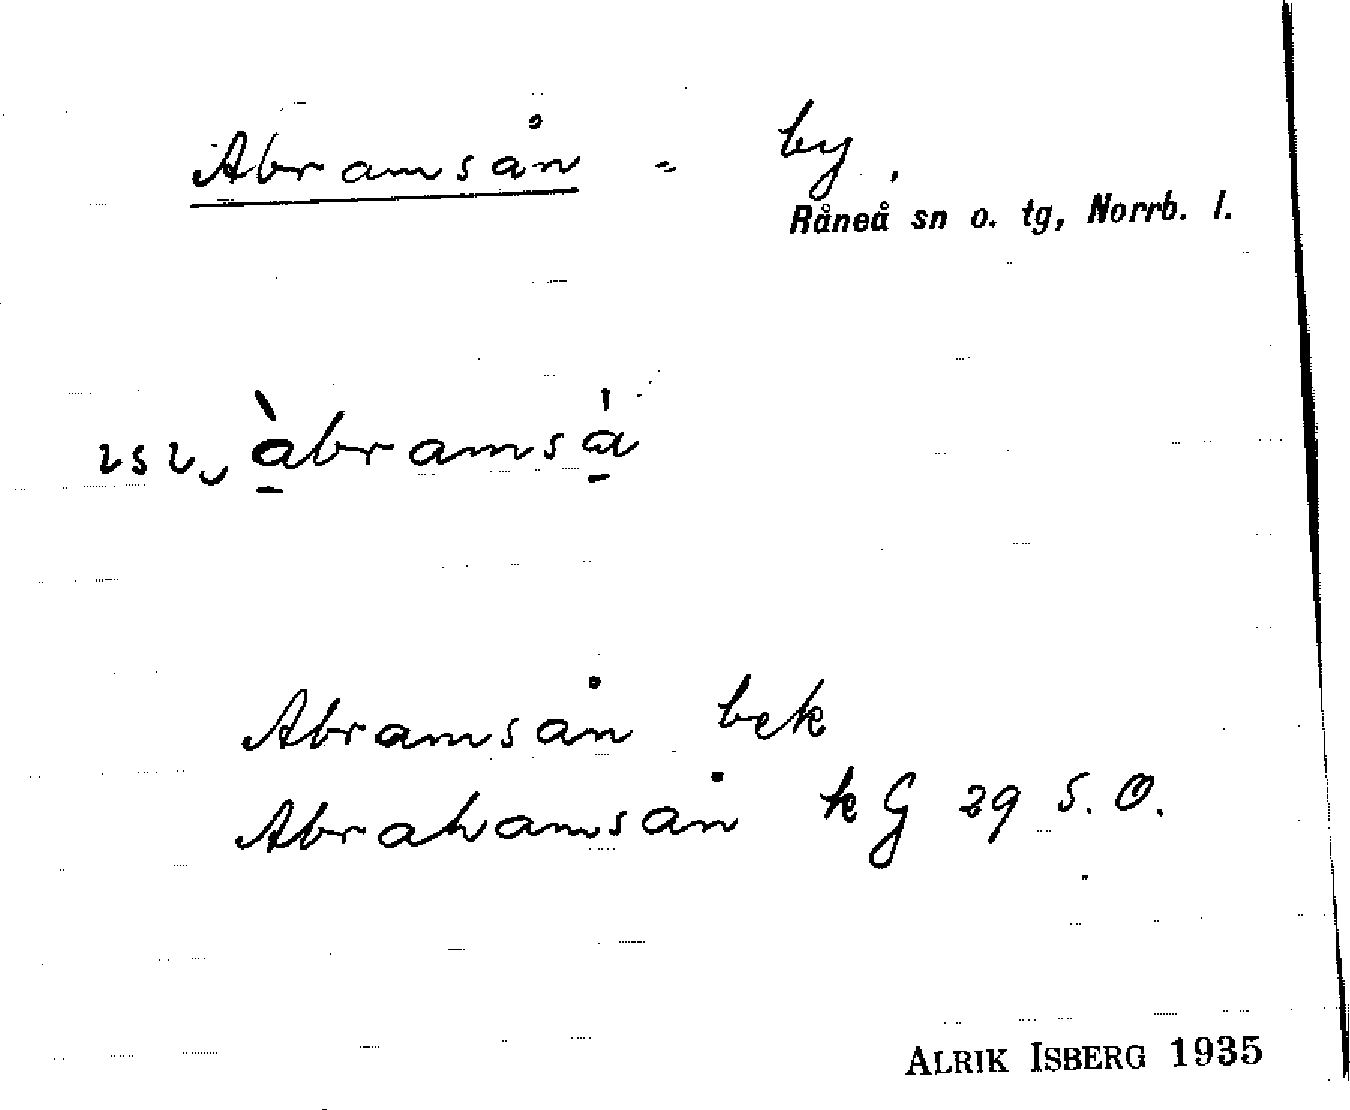 Abramsån - by.
Råneå sn o. tg, Norrb. l.
àbramsá
Abramsån bek
Abrahamsån kG 29 S.O.
ALRIK ISBERG 1935